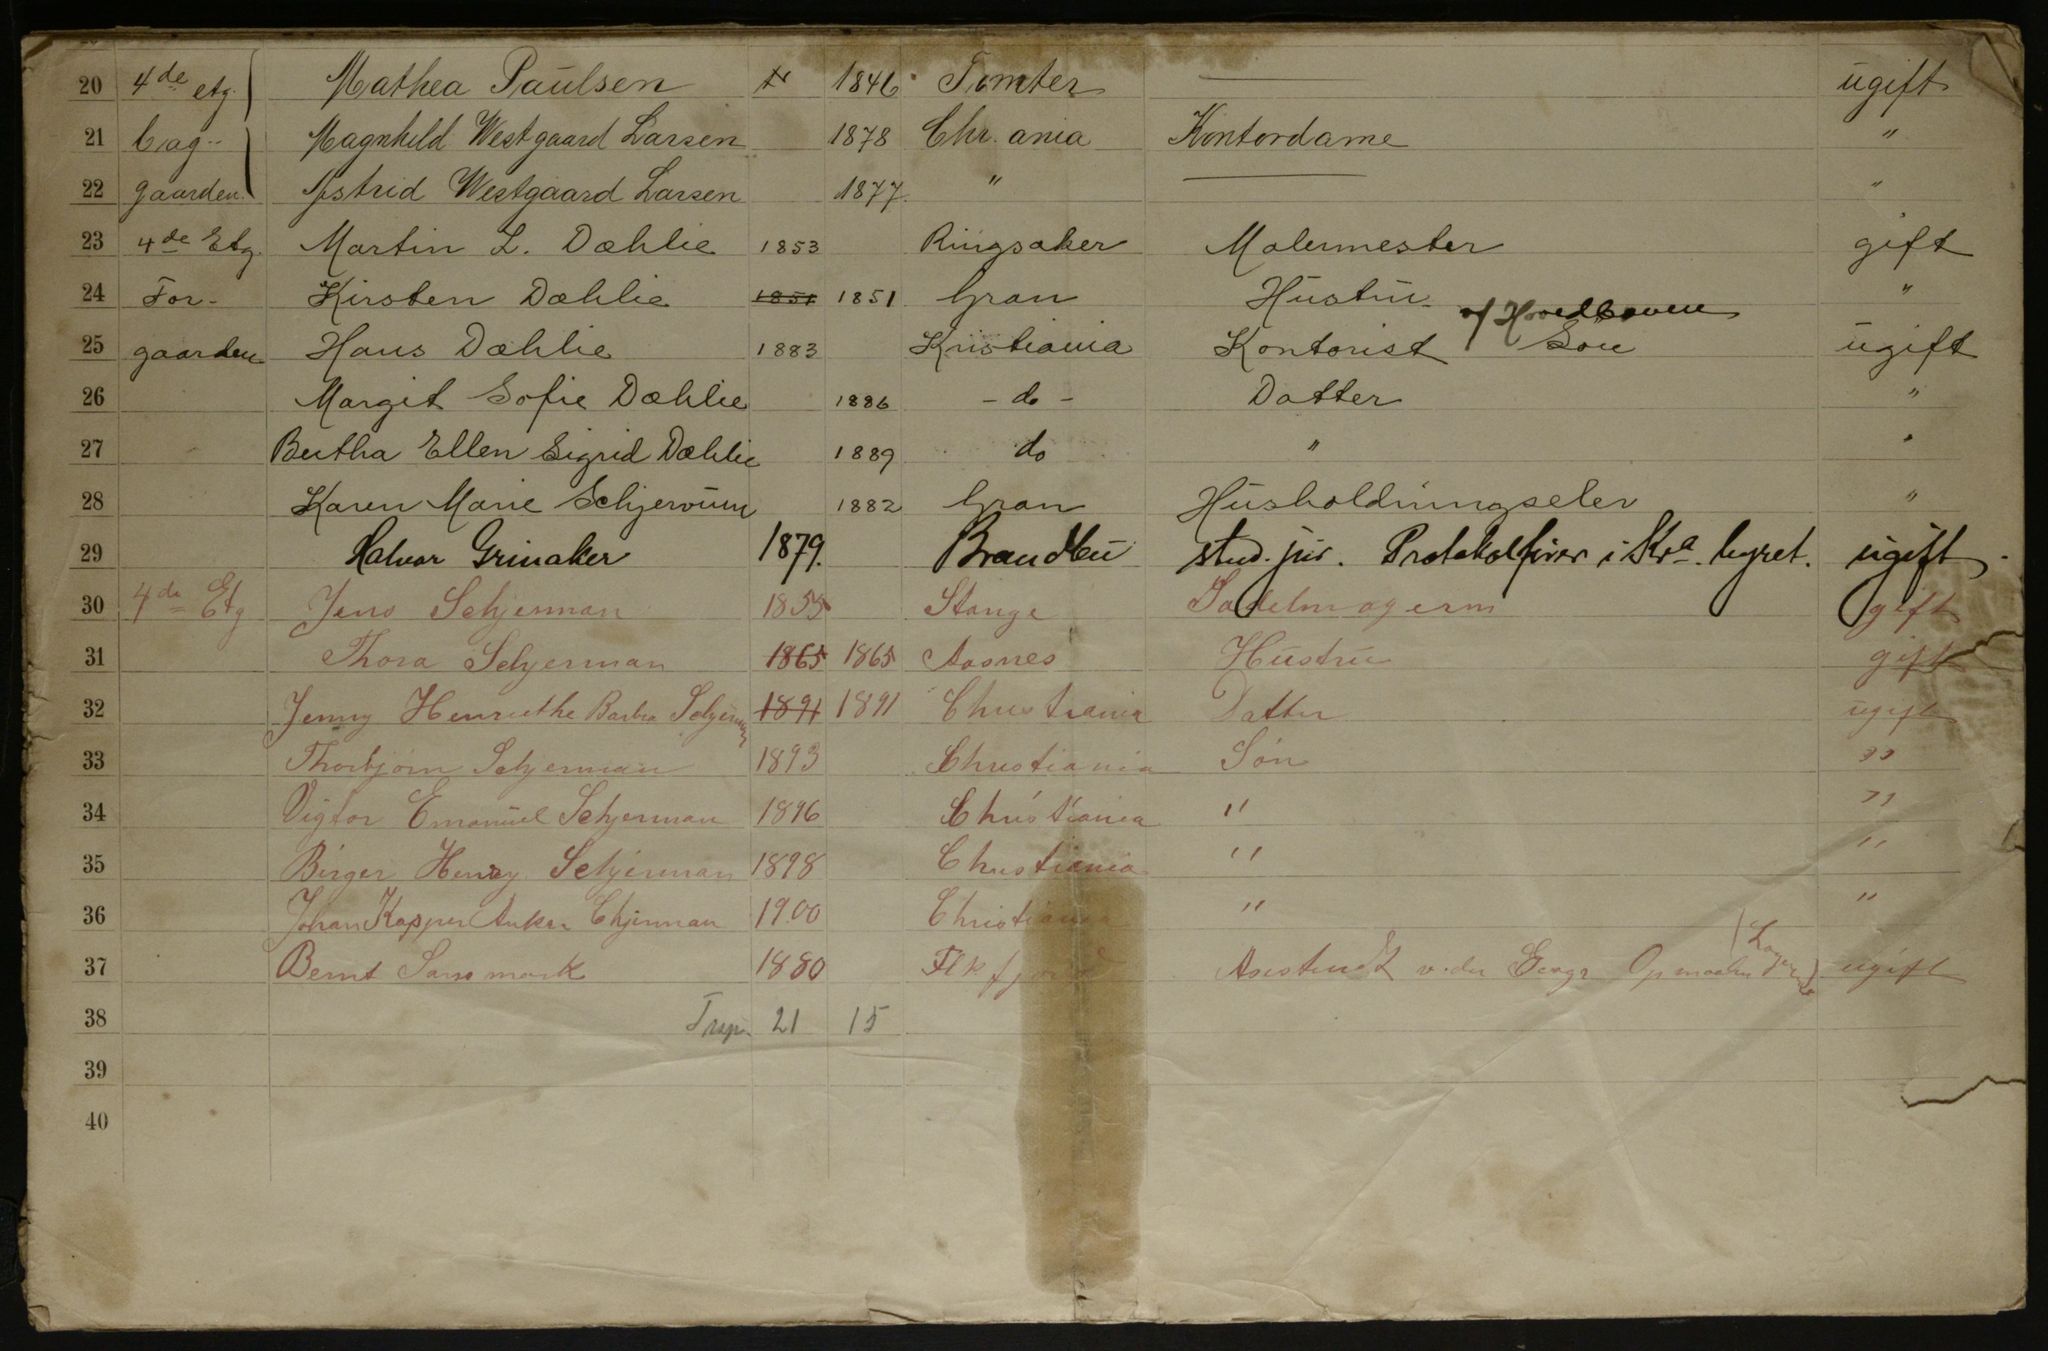 20 4de etg. Mathea Paulsen 1846 Tomter ugift
21 bag- Magnhild Westgaard Larsen 1878 Chr.ania Kontordame "
22 gaarden. Astrid Westgaard Larsen 1877. " "
23 4de Etg. Martin L. Dæhlie 1853 Ringsaker Malermester gift
24 For- Kirsten Dæhlie 1851 1851 Gran Hustru "
25 gaarden Hans Dæhlie 1883 Kristiania Kontorist Søn ugift
26 Margit Sofie Dæhlie 1886 - do - Datter "
27 Bertha Ellen Sigrid Dæhlie 1889 do " "
28 Karen Marie Schjervum 1882 Gran Husholdningselev "
29 Halvor Grinaker 1879. Brandbu stud. jur. Protokolfører i Kra. byret. ugift.
30 4de Etg Jens Schjerman 1855 Stange Sadelmagerm gift
31 Thora Schjerman 1865 1865 Aasnes Hustru gift
32 Jenny Henriethe Barbra Schjerman 1891 1891 Christiania Datter ugift
33 Thorbjørn Schjerman 1893 Christiania Søn "
34 Vigtor Emanuel Schjerman 1896 Christiania " "
35 Birger Henry Schjerman 1898 Christiania " "
36 Johan Kasper Anker Chjerman 1900 Christiania " "
37 Bernt 1880 Asistendt v. der Geogr Opmaaling ugift
38 Trsp. 21 15
39
40